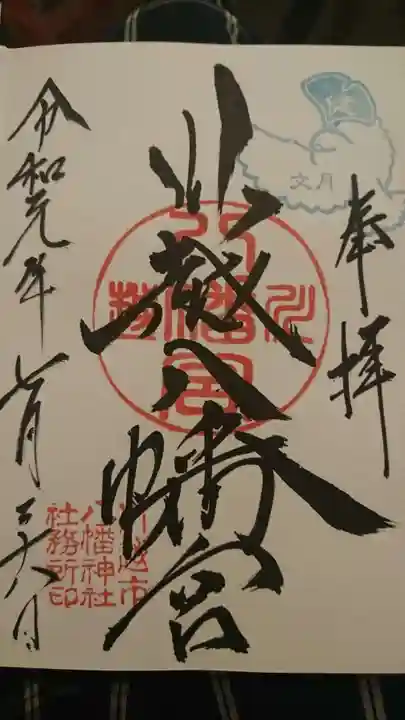 奉拝
文月
川越八幡宮
令和元年七月二十八日
川越市
八幡神社
社務所印